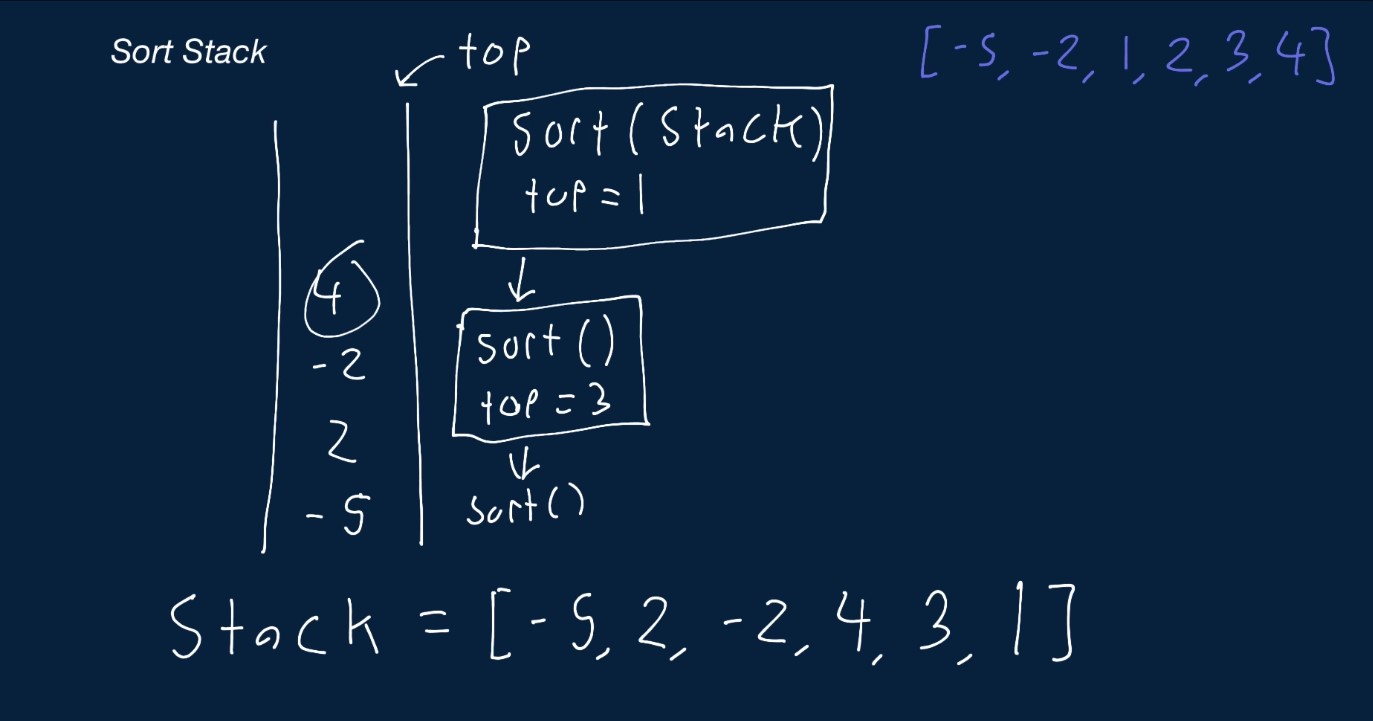 Sort Stack
top
[-5, -2, 1, 2, 3, 4]
Sort(Stack)
top = 1
4
-2
2
-5
sort()
top = 3
sort()
Stack = [-5, 2, -2, 4, 3, 1]